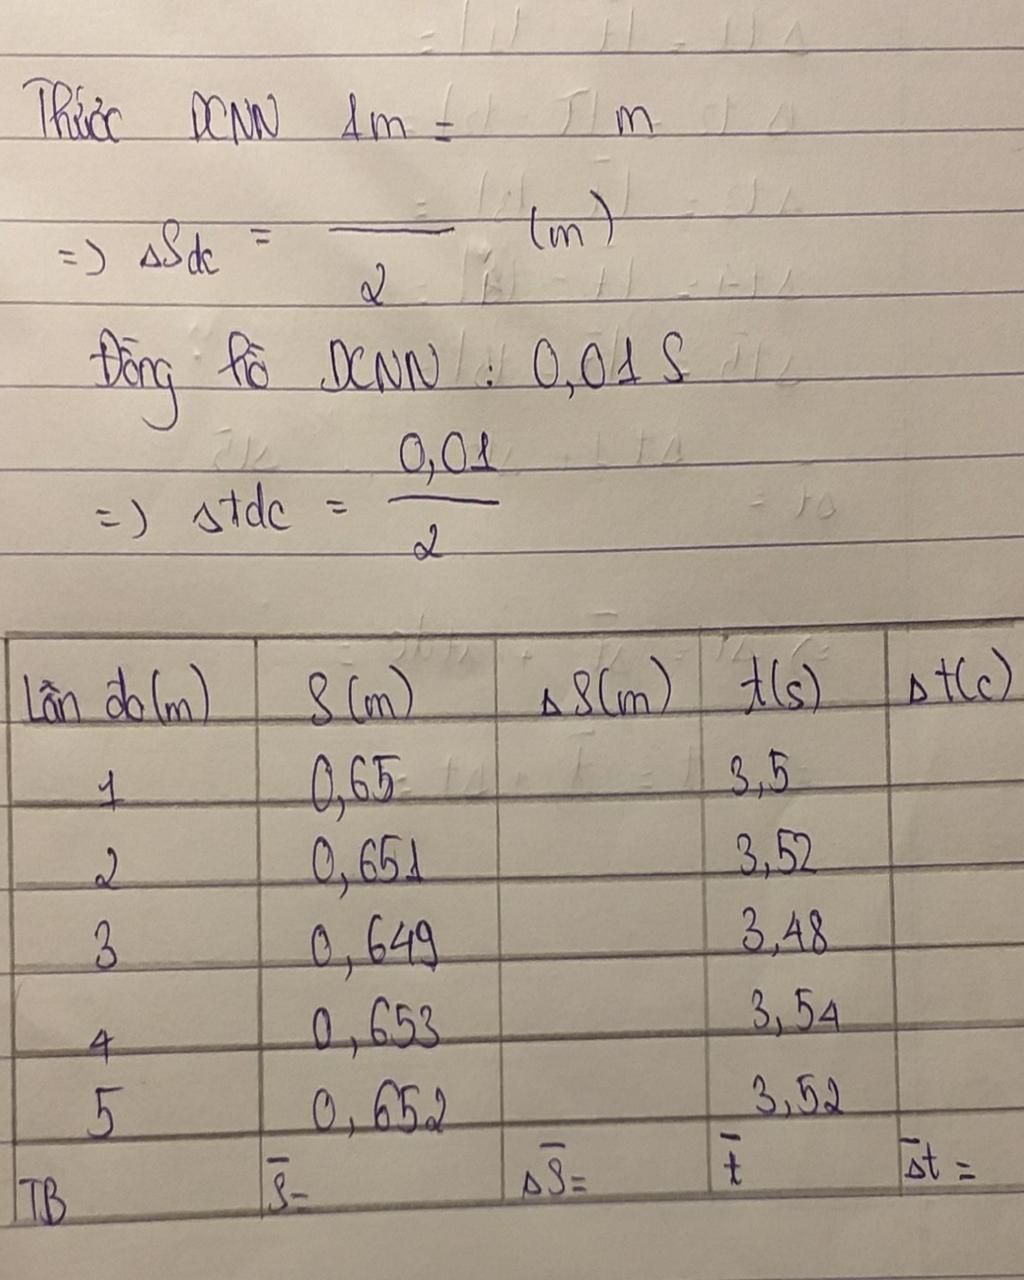 Thước ĐCNN 1m = m
=> ΔSdc = ― (m)
2
Đồng hồ ĐCNN : 0,01 S
0,01
=> Δtdc = ―
2
Lần đo(m) S(m) ΔS(m) t(s) Δt(c)
1 0,65 3,5
2 0,651 3,52
3 0,649 3,48
4 0,653 3,54
5 0,652 3,52
TB S̄= ΔS̄= t̄ Δ̄t =